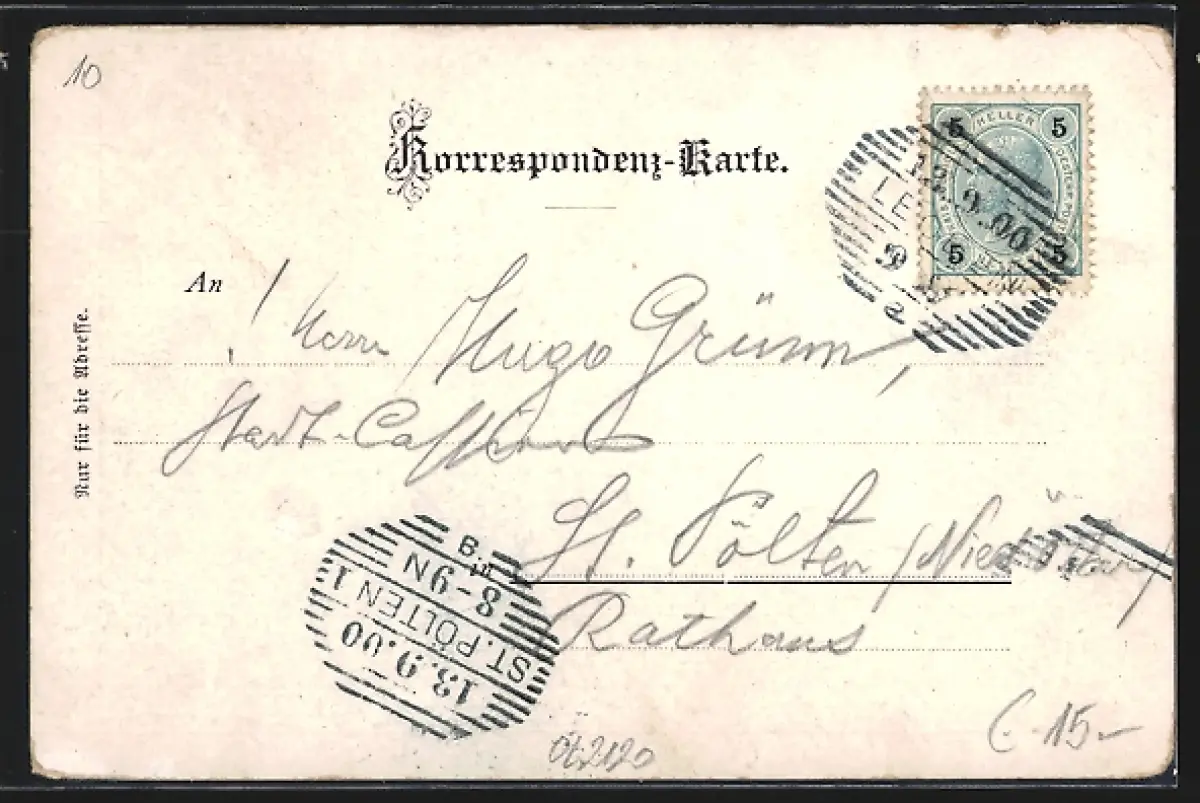 10
Korrespondenz-Karte.
5 HELLER 5
5 5
9.00
LE
9
An
Herrn Hugo Grünn,
Stadt-Cassier
St. Pölten (Nied.Östr)
Rathaus
Nur für die Adresse.
13.9.00
ST. PÖLTEN 1
8-9N
B
Öt 2120
€ 15-